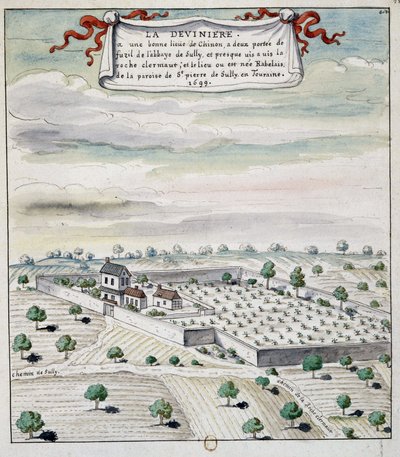 LA DEVINIERE.
a une bonne lieue de Chinon, a deux portée de
fuzil de l'abbaye de Sully, et presque uis a uis la
roche clermaut, et le lieu ou est né Rabelais,
de la paroise de St. pierre de Sully. en Touraine.
1699.
chemin de Sully.
chemin de la Roche clermaut